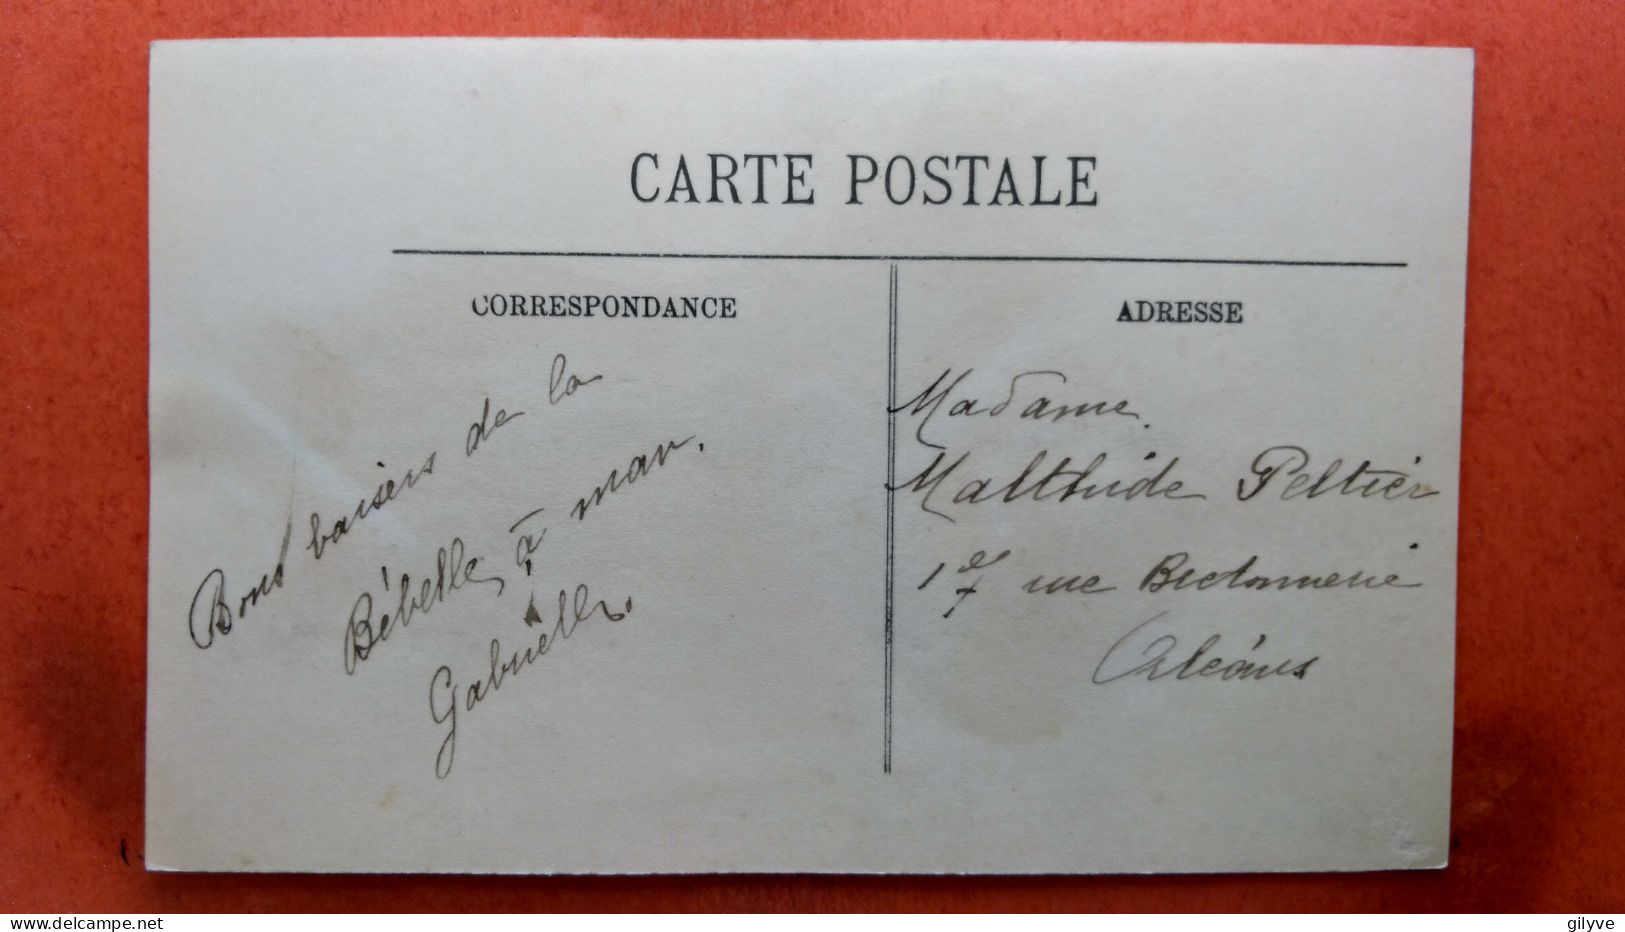 CARTE POSTALE
CORRESPONDANCE
Bons baisers de la
Bébelle, à man.
Gabrielle.
ADRESSE
Madame.
Malthide Peltier
rue Bretonnerie
Orléans
gilyve